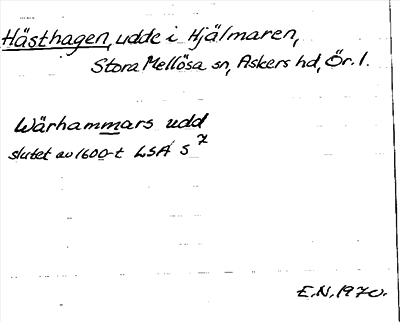 Hästhagen, udde i Hjälmaren,
Stora Mellösa sn, Askers hd, Ör. l.
Wärhammars udd
slutet av 1600-t LSA S 7
E.N. 1970.